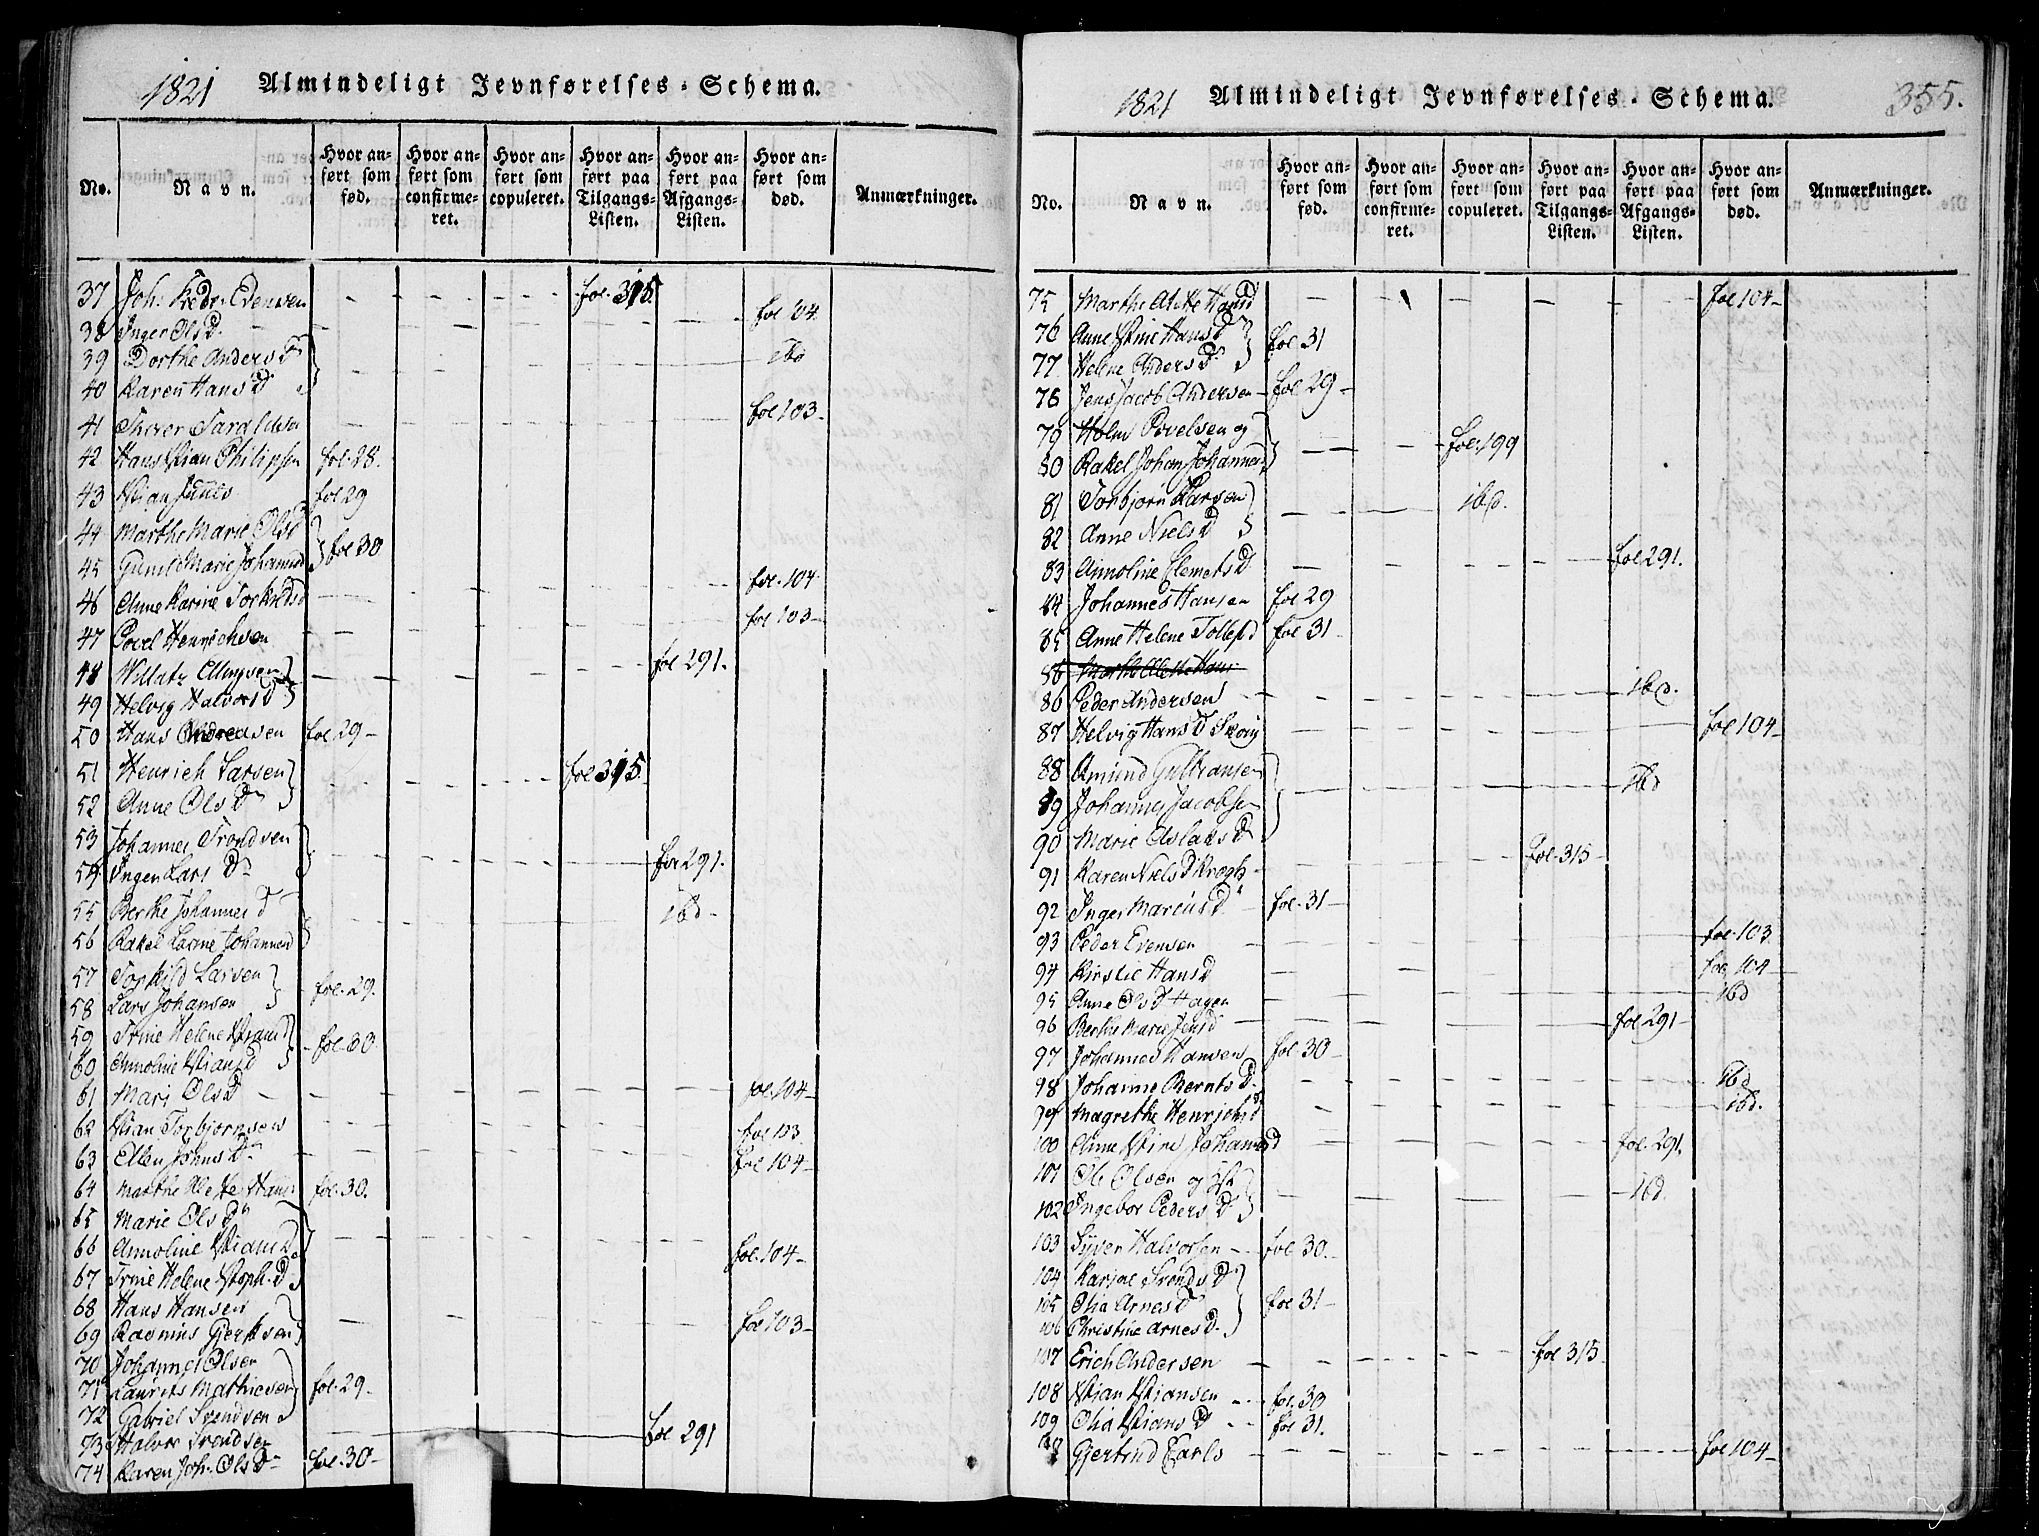 1821 Almindeligt Jevnførelses-Schema.
No. Navn. Hvor anført som fød. Hvor anført som confirmeret. Hvor anført som copuleret. Hvor anført paa Tilgangs-Listen. Hvor anført paa Afgangs-Listen. Hvor anført som død. Anmærkninger.
37 Joh: Fredr: Evensen fol. 315.
38 Inger Ols D. fol 104
39 Dorthe Anders D
40 Karen Hans D ibd
41 Taraldsen fol 103
42 Hans Xtian Philipsen fol. 28.
43 Xtian fol 29
44 Marthe Marie Ols D
45 Gunild Marie Johannesd fol 30
46 Anne Karine Torkildsd fol. 104
47 Povel Henrichsen fol 103
48 Willatz Ellingsen
49 Helvig Halvors D fol 291.
50 Hans Andreasen fol 29
51 Henrich Larsen
52 Anne Ols D fol 315.
53 Johannes Trondsen
54 Inger Lars D fol 291.
55 Berthe Johannes D
56 Rakel Lovine Johannesd ibd
57 Torkild Larsen
58 Lars Johansen fol. 29.
59 Trine Helene Xtiansd
60 Annoline Xtiansd fol. 30
61 Mari Ols D fol. 104
62 Xtian Torbjornsen fol 103
63 Ellen Johns D fol 104
64 Marthe Alette Hans fol. 30.
65 Marie Ols D
66 Annoline Xtians D
67 Trine Helene Xtoph. D fol. 104
68 Hans Hansen
69 Rasmus Gjertsen fol 103
70 Johannes Olsen
71 Laurits Mathiesen fol. 29
72 Gabriel Svendsen
73 Halvor Trondsen fol 291
74 Karen Joh: Ols D fol. 30
1821 Almindeligt Jevnførelses-Schema. 355.
No. Navn. Hvor anført som fød. Hvor anført som confirmeret. Hvor anført som copuleret. Hvor anført paa Tilgangs-Listen. Hvor anført paa Afgangs-Listen. Hvor anført som død. Anmærkninger.
75 Marthe Alette Hansd fol 104
76 Anne Stine Hans D
77 Helene Anders D fol 31
78 Jens Jacob Andersen fol 29
79 Holm Povelsen og
80 Rakel Johan Johannesd fol. 199
81 Torbjørn Larsen
82 Anne Niels D ibd.
83 Annoline Clemets D fol 291.
84 Johannes Hansen fol 29
85 Anne Helene Tollefsd fol 31
86 Marthe Alette Hans
86 Peder Andersen ibd.
87 Helvig Hans D Skovig fol 104
88 Amund Gulbransen
89 Johannes Jacobsen ibd
90 Marie Aslaks D
91 Karen Niels D Krogh fol. 315
92 Inger Marcus D fol. 31
93 Peder Evensen fol. 103
94 Kirstie Hans D fol. 104
95 Anne Ols D Hagen ibd
96 Berthe Marie Jensd fol 291
97 Johannes Hansen fol. 30
98 Johanne Bernts D. ibd
99 Magrethe Henrichsd ibd.
100 Anne Stine Johannesd fol. 291.
101 Ole Olsen og
102 Ingebor Peders D ibd.
103 Syver Halvorsen fol 30.
104 Karine Tronds D
105 Olia Arnes D fol 31
106 Christine Arnes D.
107 Erich Andersen fol 315
108 Xtian Xtiansen fol. 30
109 Olia Xtians D fol 31.
Gjertrud Carls fol 104